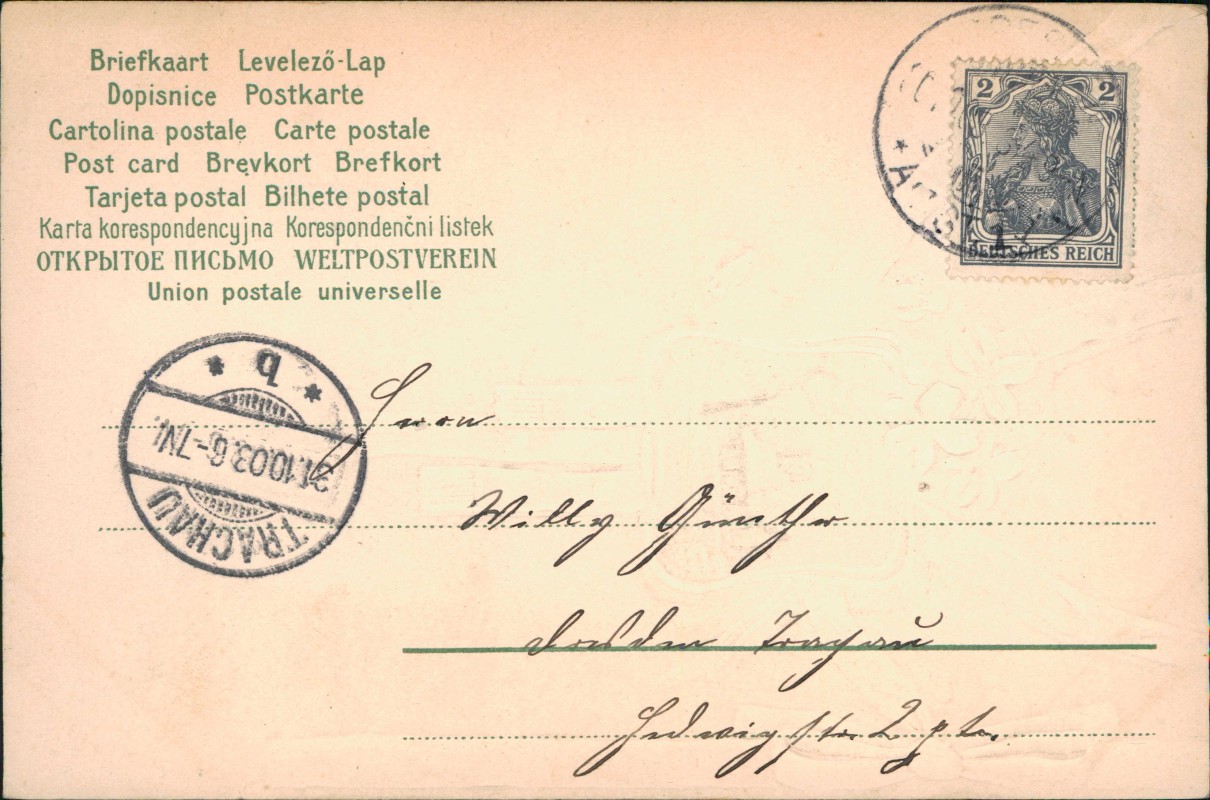 Briefkaart Levelező-Lap
Dopisnice Postkarte
Cartolina postale Carte postale
Post card Brevkort Brefkort
Tarjeta postal Bilhete postal
Karta korespondencyjna Korespondenčni listek
ОТКРЫТОЕ ПИСЬМО WELTPOSTVEREIN
Union postale universelle
2 2
DEUTSCHES REICH
* b *
31.10.03.6-7N.
TRACHAU
Herrn
Willy Günther
Dresden Trachau
Hedwigstr. 2 ptr.